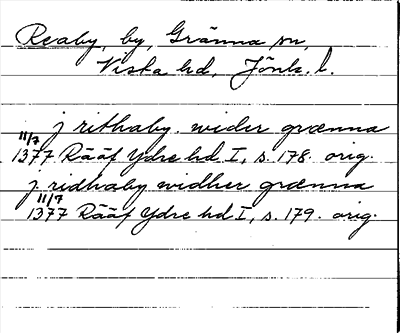 Reaby, by, Gränna sn,
Vista hd, Jönk. l.
j rithaby. wider grænna
11/7
1377 Rääf Ydre hd I, s. 178. orig.
j ridhaby widher grænna
11/7
1377 Rääf Ydre hd I, s. 179. orig.